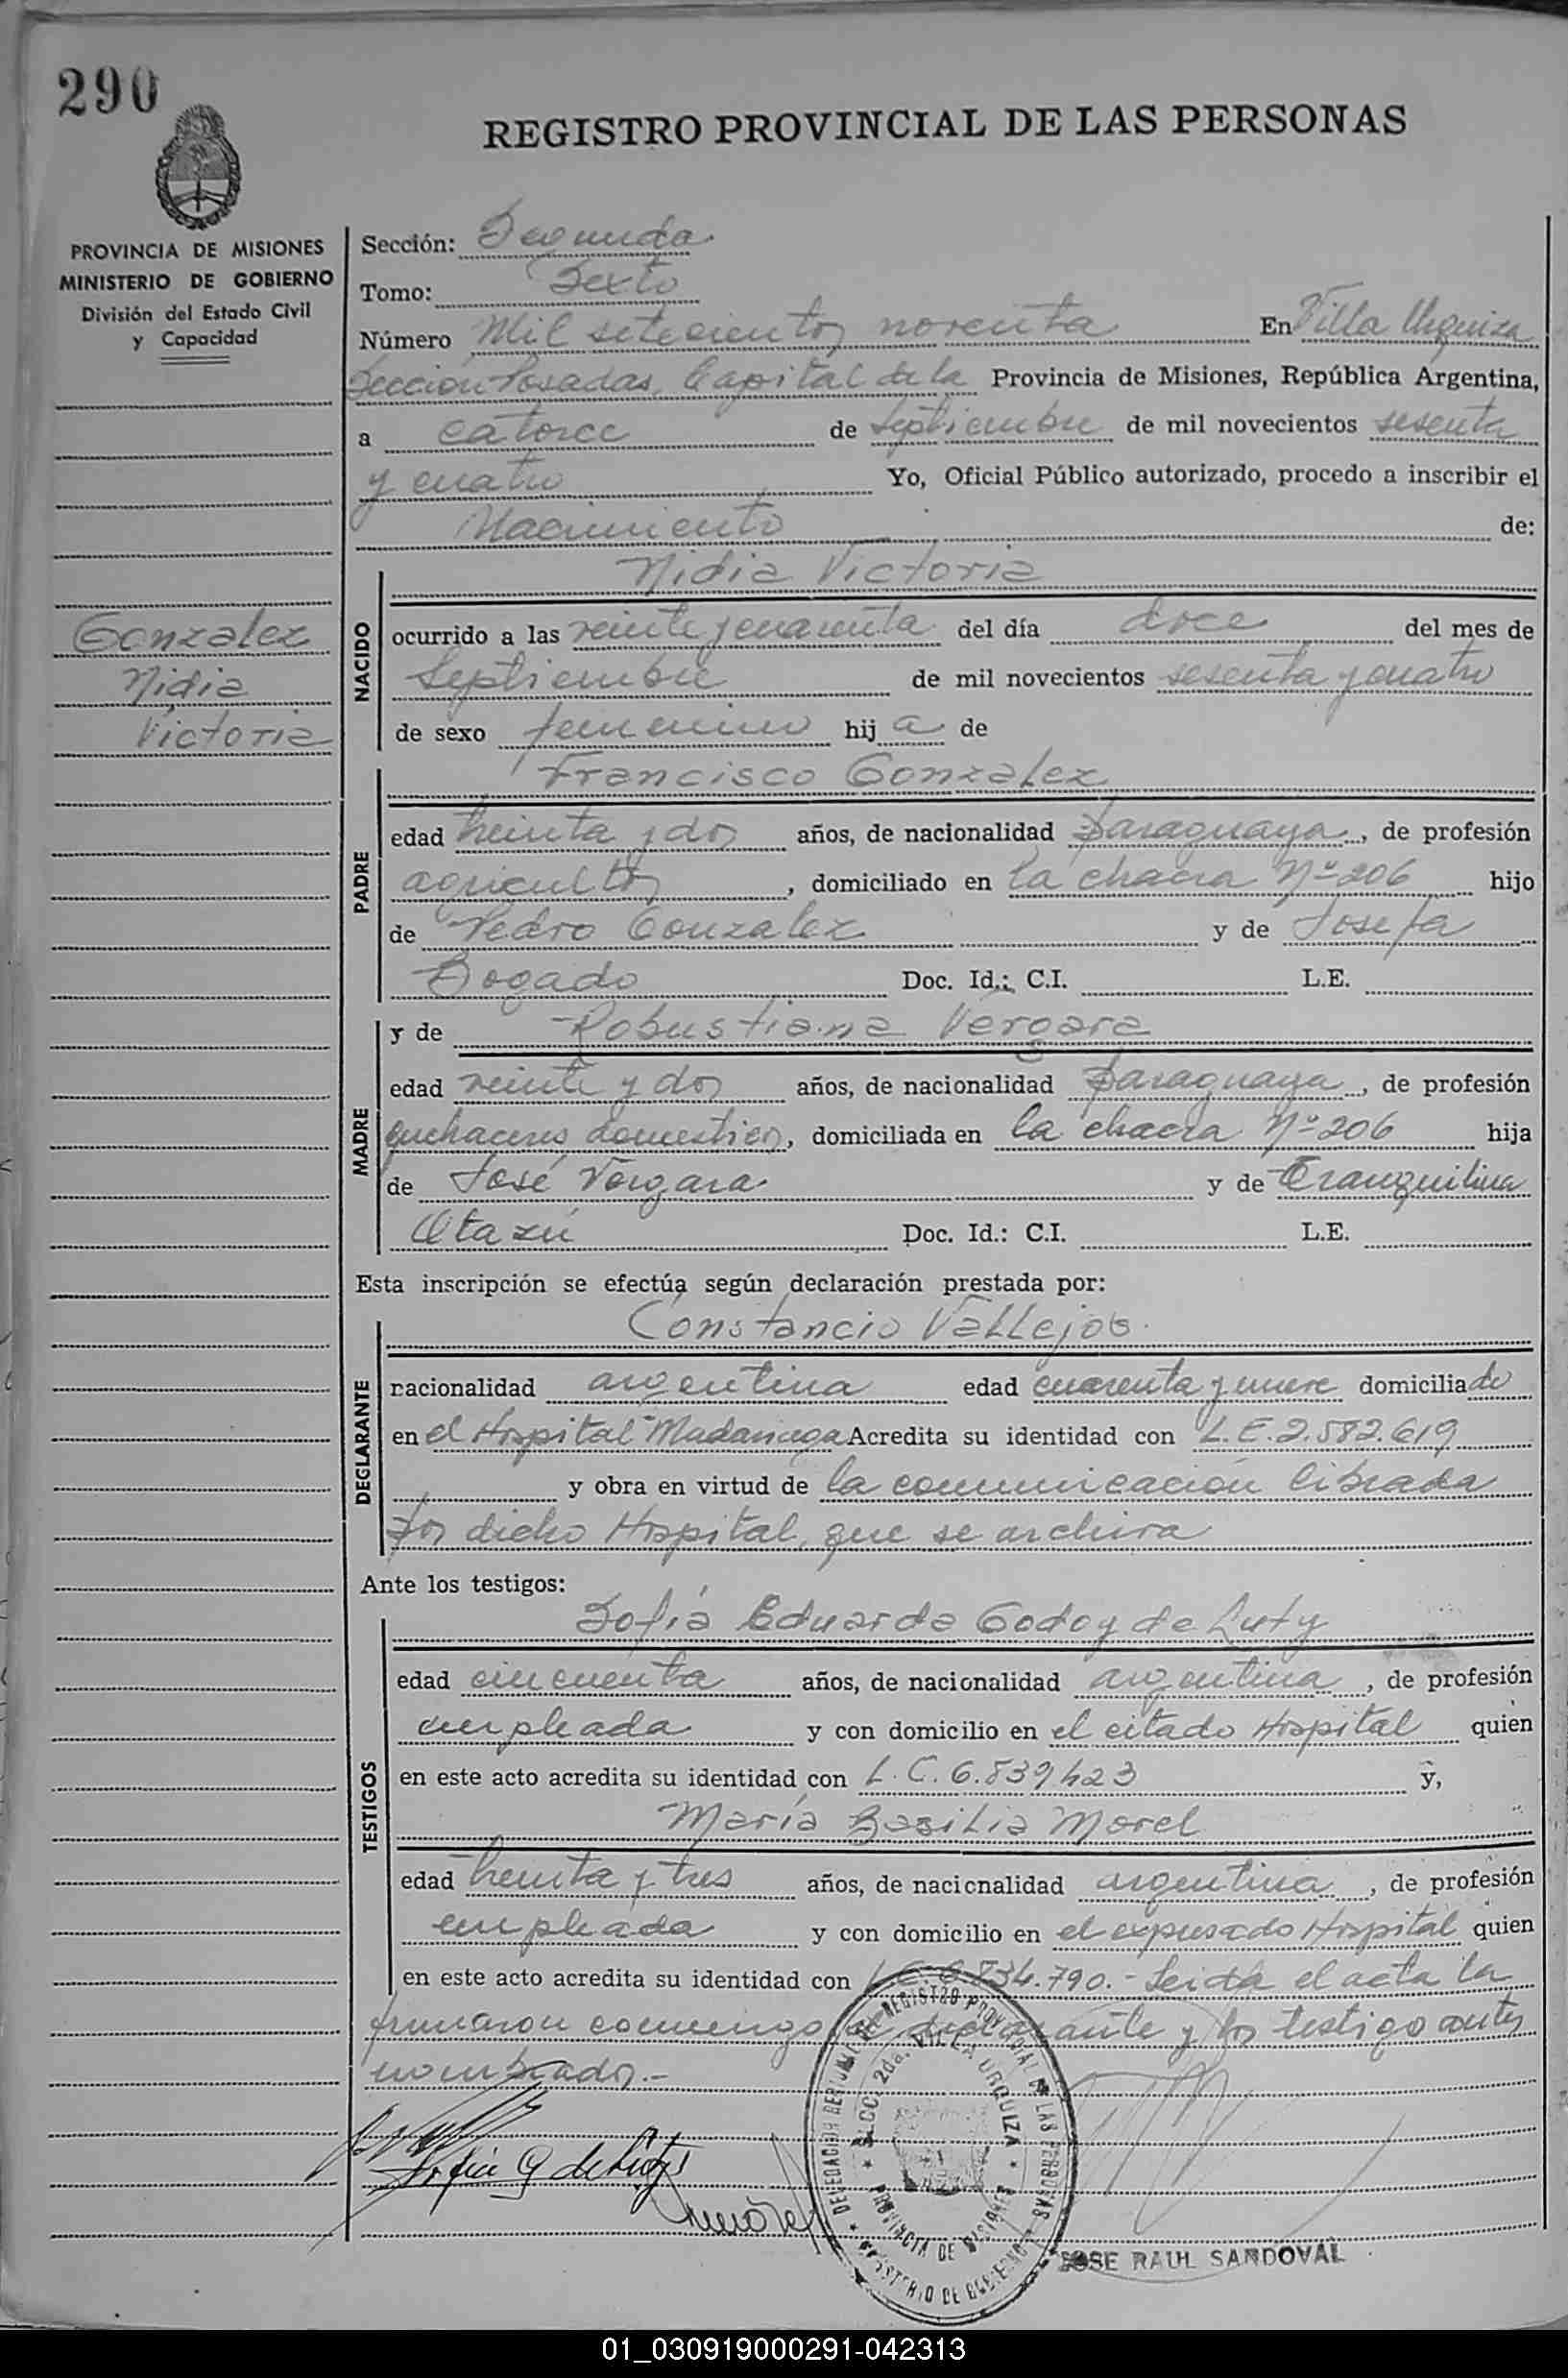 290
REGISTRO PROVINCIAL DE LAS PERSONAS
PROVINCIA DE MISIONES
MINISTERIO DE GOBIERNO
División del Estado Civil
y Capacidad
Gonzalez
Nidia
Victoria
Sección: Segunda
Tomo: Sexto
Número Mil setecientos noventa En Villa Urquiza
Sección Posadas, Capital de la Provincia de Misiones, República Argentina,
a catorce de Septiembre de mil novecientos sesenta
y cuatro Yo, Oficial Público autorizado, procedo a inscribir el
Nacimiento de:
NACIDO
Nidia Victoria
ocurrido a las veinte y cuarenta del día doce del mes de
Septiembre de mil novecientos sesenta y cuatro
de sexo femenino hij a de
PADRE
Francisco Gonzalez
edad treinta y dos años, de nacionalidad paraguaya, de profesión
agricultor, domiciliado en la chacra Nº 206 hijo
de Pedro Gonzalez y de Josefa
Bogado Doc. Id.: C.I. L.E.
MADRE
y de Robustiana Vergara
edad veinte y dos años, de nacionalidad paraguaya, de profesión
quehaceres domesticos, domiciliada en la chacra Nº 206 hija
de José Vergara y de Tranquilina
Otazú Doc. Id.: C.I. L.E.
Esta inscripción se efectúa según declaración prestada por:
DEGLARANTE
Constancio Vallejos
nacionalidad argentina edad cuarenta y nueve domiciliado
en el Hospital Madariaga Acredita su identidad con L.E. 2.582.619
y obra en virtud de la comunicación librada
por dicho Hospital, que se archiva
Ante los testigos:
TESTIGOS
Sofía Eduarda Godoy de Luty
edad cincuenta años, de nacionalidad argentina, de profesión
empleada y con domicilio en el citado Hospital quien
en este acto acredita su identidad con L.C. 6.839.423 y,
María Basilia Morel
edad treinta y tres años, de nacionalidad argentina, de profesión
empleada y con domicilio en el expresado Hospital quien
en este acto acredita su identidad con L.C. 6.834.790.- Leida el acta la
firmaron conmigo el declarante y los testigo antes
nombrados.-
Sofia G de Luty
MMorel
DELEGACION DEL REGISTRO PROVINCIAL DE LAS PERSONAS
SECC. 2da. VILLA URQUIZA
PROVINCIA DE MISIONES
MINISTERIO DE GOBIERNO
JOSE RAUL SANDOVAL
01_030919000291-042313